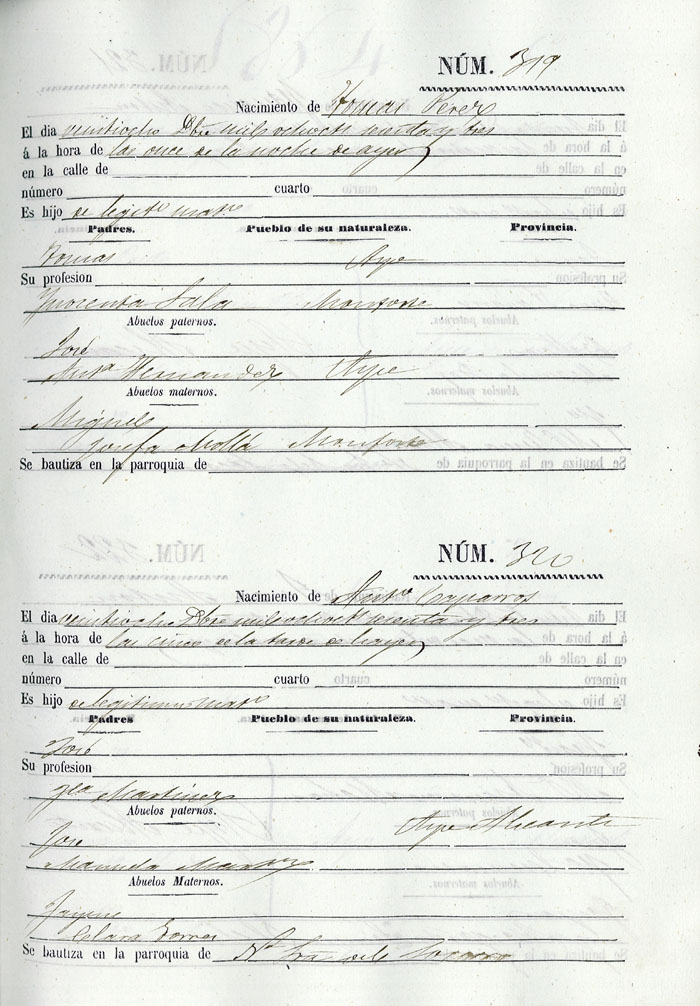 NÚM. 319
Nacimiento de Tomas Perez
El dia veintiocho Dbre mil ochocts sesenta y tres
á la hora de las once de la noche de ayer
en la calle de
número cuarto
Es hijo de legito matro
Padres. Pueblo de su naturaleza. Provincia.
Tomas Aspe
Su profesion
Sala Monforte
Abuelos paternos.
José
Anta Hernandez Aspe
Abuelos maternos.
Miguel
Josefa Mollá Monforte
Se bautiza en la parroquia de
NÚM. 320
Nacimiento de Caparros
El dia veintiocho Dbre mil ochocts sesenta y tres
á la hora de las cinco de la tarde de hayer
en la calle de
número cuarto
Es hijo de legitimo matro
Padres Pueblo de su naturaleza. Provincia.
José
Su profesion
Martinez
Abuelos paternos.
José Aspe Alicante
Manuela
Abuelos Maternos.
Jayme
Clara Torres
Se bautiza en la parroquia de Na Sra del Socorro